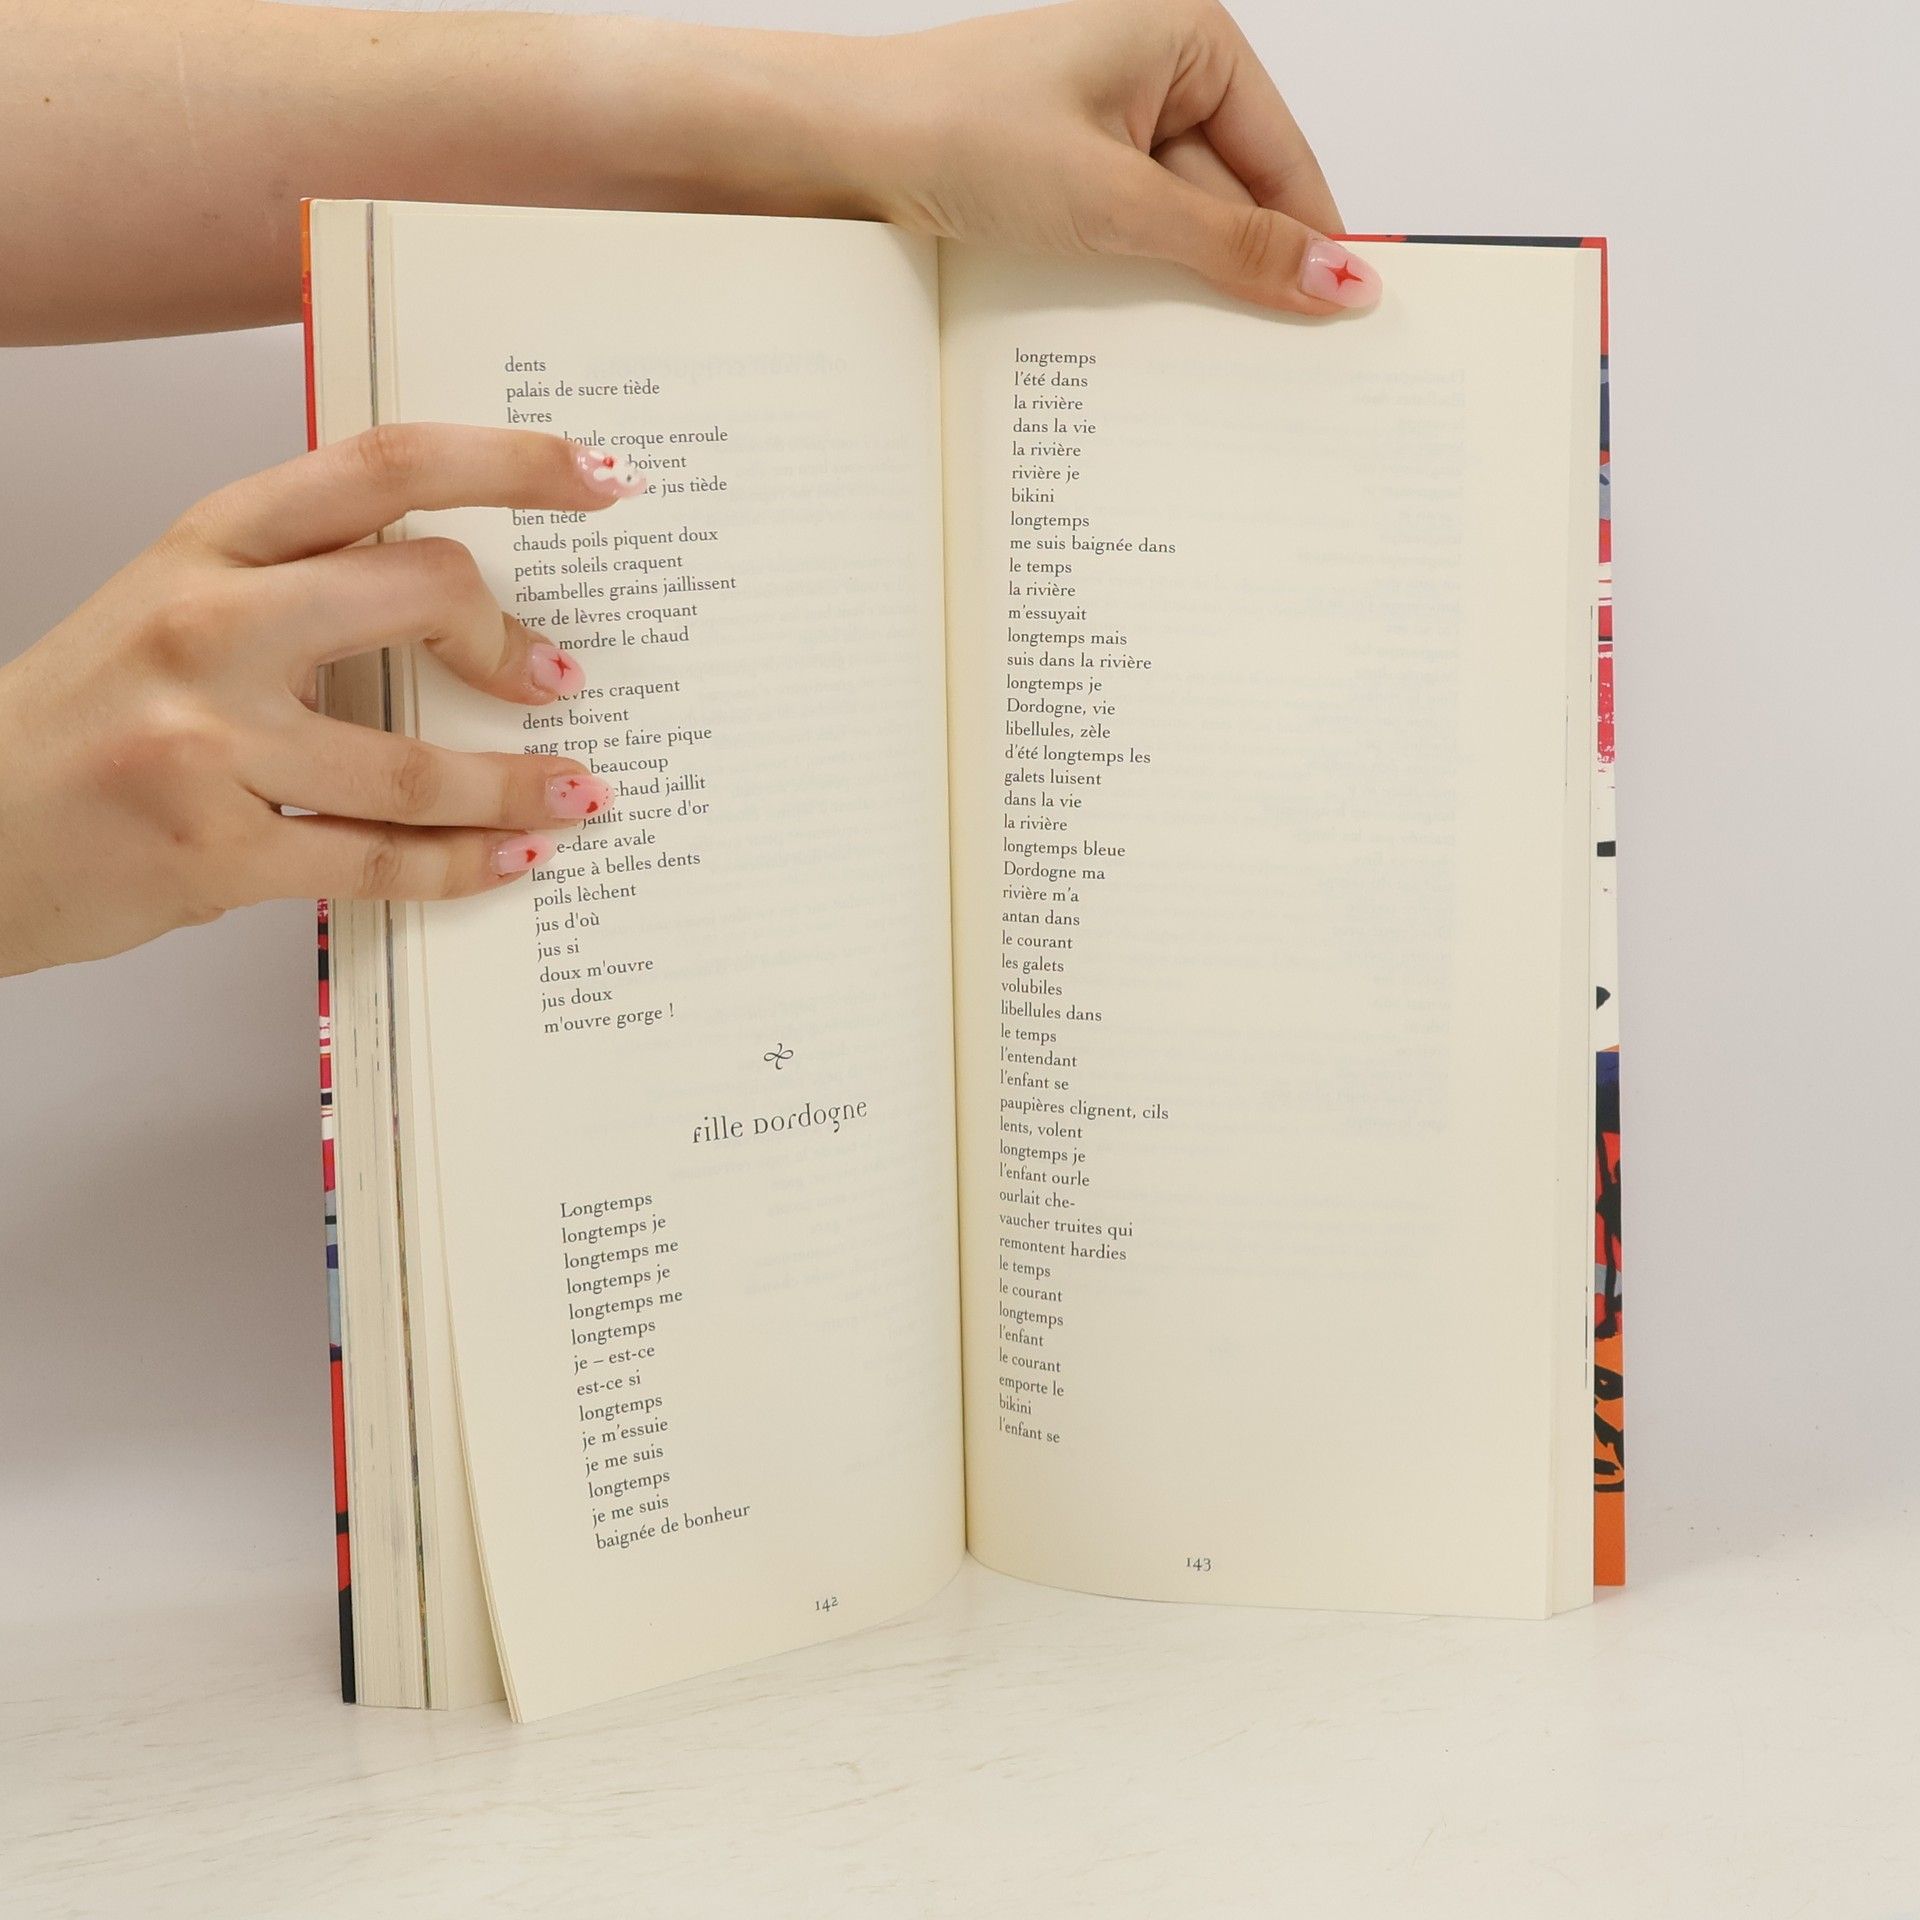 dents
palais de sucre tiède
lèvres
boule croque enroule
boivent
le jus tiède
bien tiède
chauds poils piquent doux
petits soleils craquent
ribambelles grains jaillissent
ivre de lèvres croquant
mordre le chaud
lèvres craquent
dents boivent
sang trop se faire pique
beaucoup
chaud jaillit
jaillit sucre d'or
e-dare avale
langue à belles dents
poils lèchent
jus d'où
jus si
doux m'ouvre
jus doux
m'ouvre gorge !
fille Dordogne
Longtemps
longtemps je
longtemps me
longtemps je
longtemps me
longtemps
je – est-ce
est-ce si
longtemps
je m'essuie
je me suis
longtemps
je me suis
baignée de bonheur
142
longtemps
l'été dans
la rivière
dans la vie
la rivière
rivière je
bikini
longtemps
me suis baignée dans
le temps
la rivière
m'essuyait
longtemps mais
suis dans la rivière
longtemps je
Dordogne, vie
libellules, zèle
d'été longtemps les
galets luisent
dans la vie
la rivière
longtemps bleue
Dordogne ma
rivière m'a
antan dans
le courant
les galets
volubiles
libellules dans
le temps
l'entendant
l'enfant se
paupières clignent, cils
lents, volent
longtemps je
l'enfant ourle
ourlait che-
vaucher truites qui
remontent hardies
le temps
le courant
longtemps
l'enfant
le courant
emporte le
bikini
l'enfant se
143